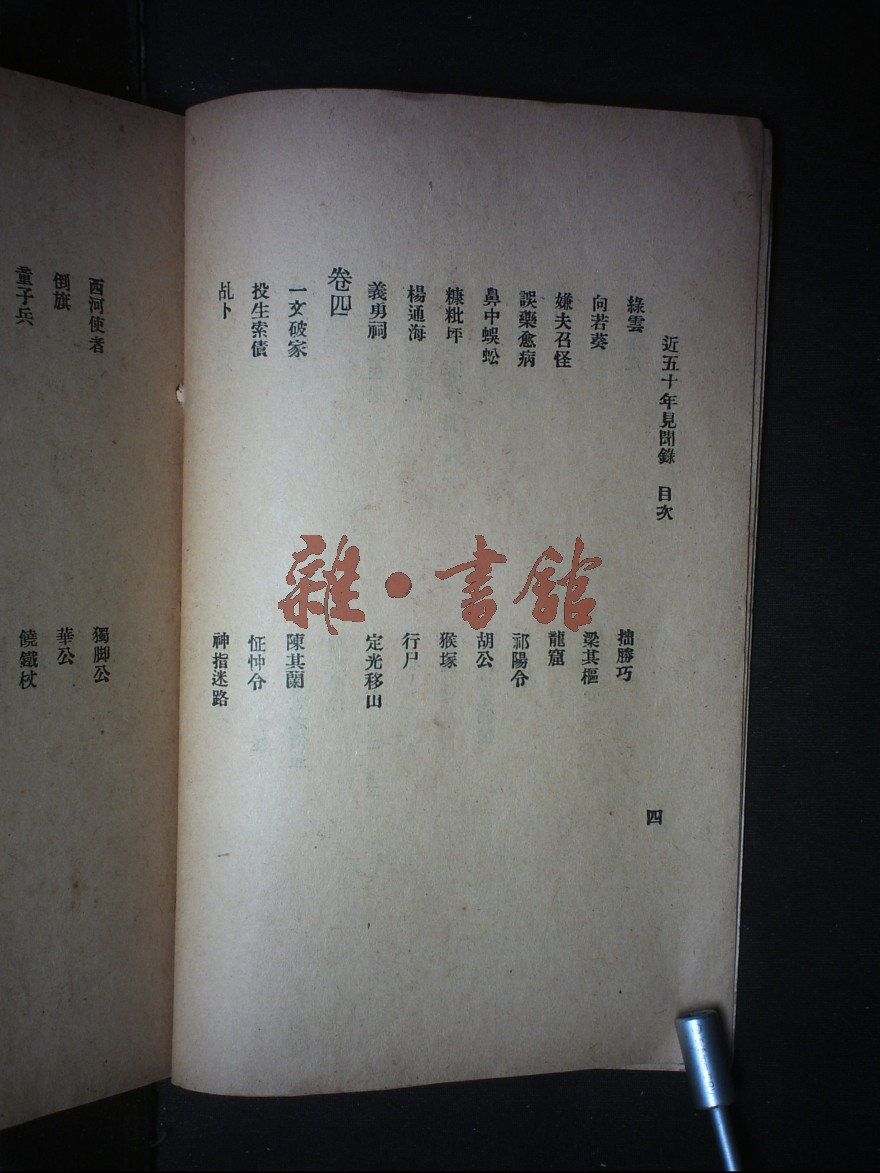 近五十年見聞錄 目次
四
綠雲
拙勝巧
向若葵
梁其樞
嫌夫召怪
龍窟
誤藥愈病
祁陽令
鼻中蜈蚣
胡公
糠粃坪
猴塚
楊通海
行尸
義勇祠
定光移山
卷四
一文破家
陳其蘭
投生索債
怔忡令
乩卜
神指迷路
西河使者
獨脚公
倒旗
華公
童子兵
饒鐵杖
雜·書館